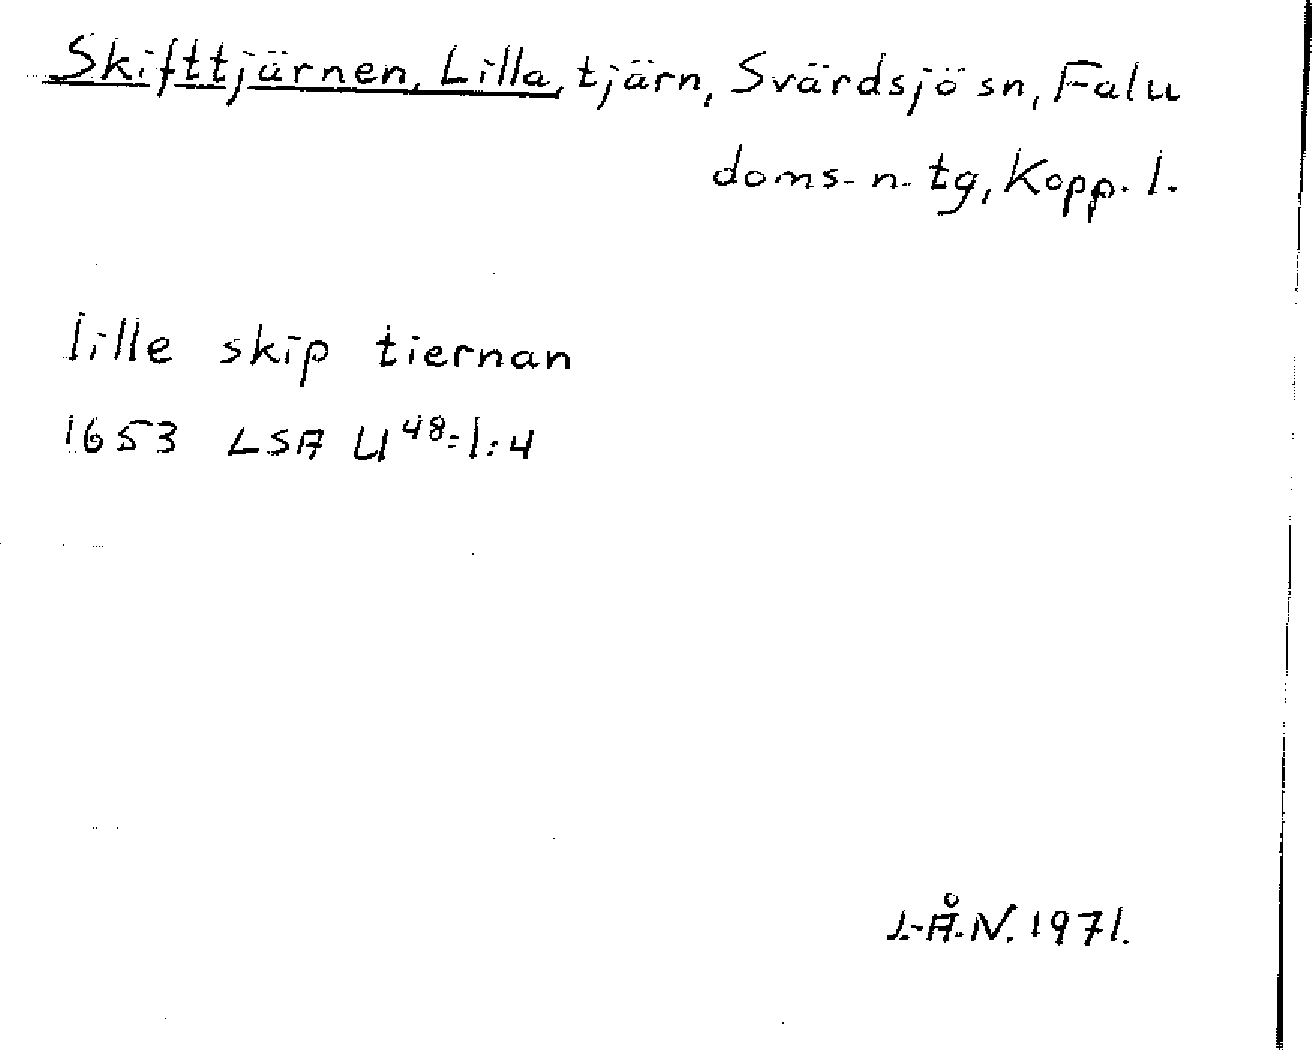 Skifttjärnen, Lilla, tjärn, Svärdsjö sn, Falu
doms- n- tg, Kopp. l.
lille skip tiernan
1653 LSA U 48:1:4
L-Å.N. 1971.